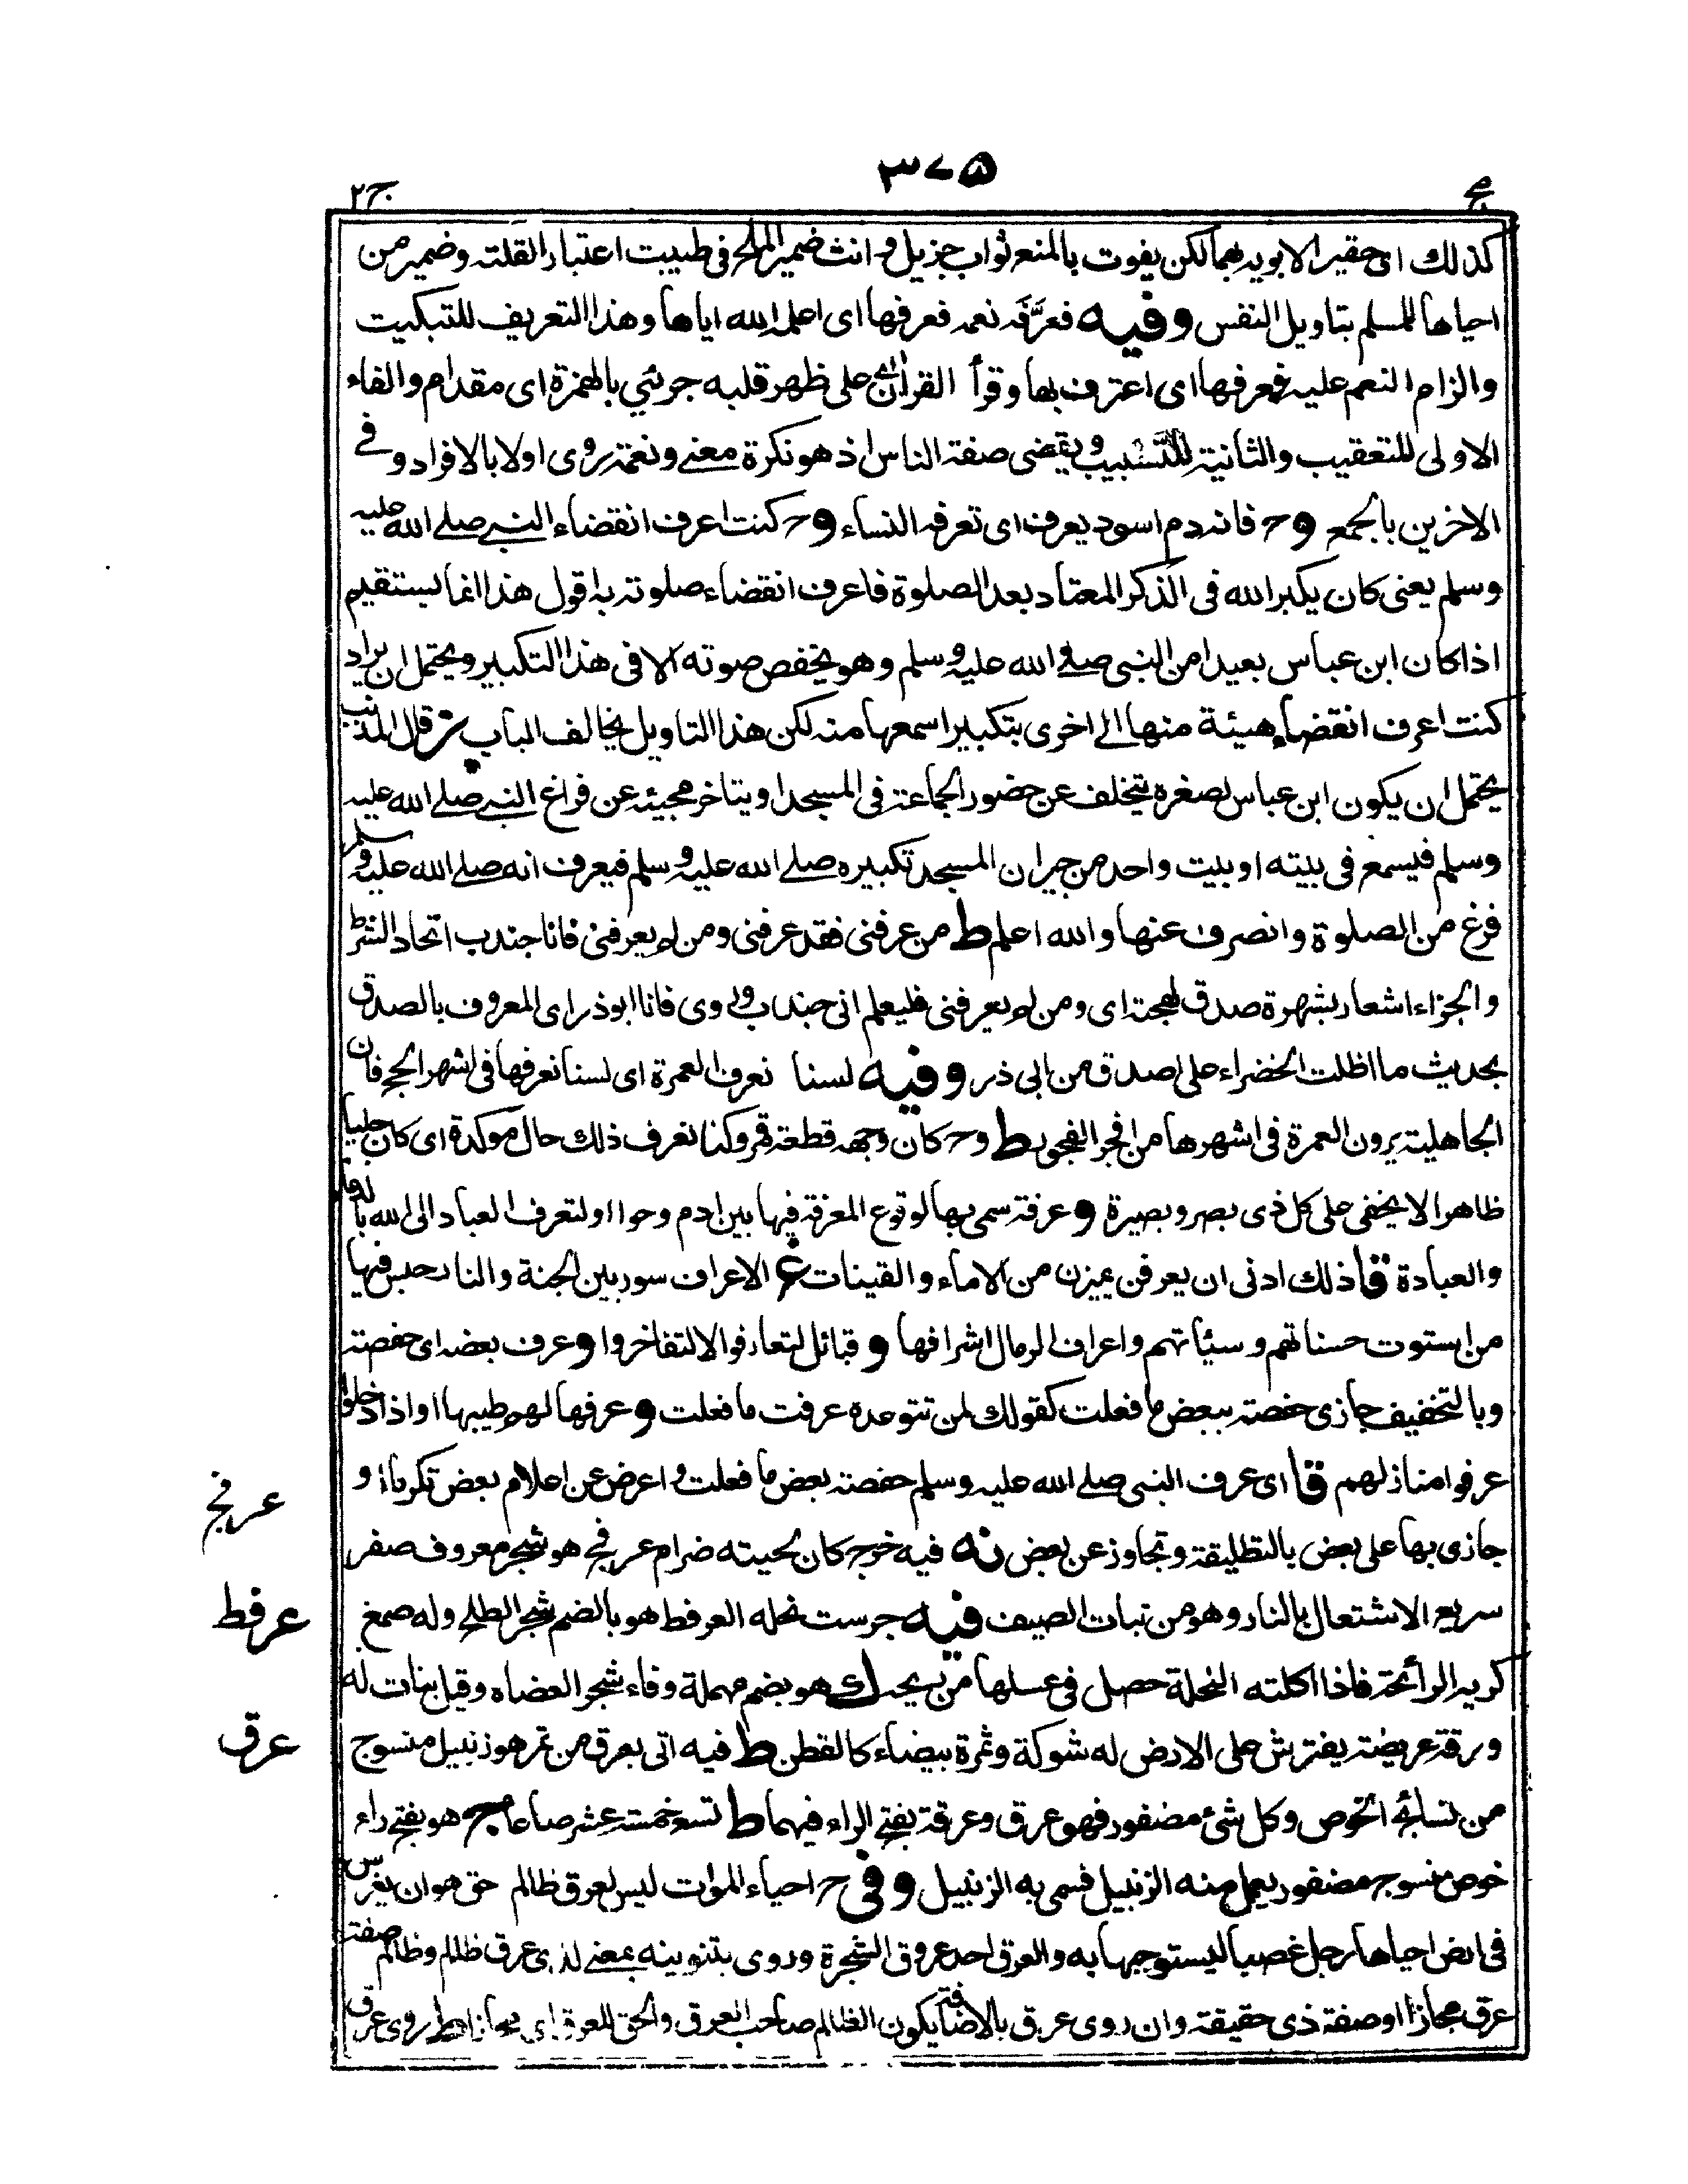 ٣٧٥
ج٢
كذلك اى حقير الا يوبه بهما لكن يفوت بالمنع ثواب جزيل و انث ضمير الملح فى طيبت اعتبار القلته وضمير من
احياها للمسلم بتاويل النفس وفيه فعرَّفه نعمه فعرفها اى اعلم الله اياها وهذا التعريف للتبكيت
والزام النعم عليه فعرفها اى اعترف بها وقرأ القراٰن على ظهر قلبه جرئي بالهمزة اى مقدام والفاء
الاولى للتعقيب والثانية للتسبيب ويقضى صفة الناس اذ هو نكرة معنے ونعمة روى اولا بالافراد وفے
الاخرين بالجمع وح فانه دم اسود يعرف اى تعرفه النساء وح كنت اعرف انقضاء النبي صلے الله عليه
وسلم يعنى كان يكبر الله فى الذكر المعتاد بعد الصلوة فاعرف انقضاء صلوته به اقول هذا انما يستقيم
اذا كان ابن عباس بعيدا من النبى صلے الله عليه وسلم وهو يخفض صوته الا فى هذا التكبير ويحتمل ان يراد
كنت اعرف انقضاء هيئة منها الے اخرى بتكبير اسمعها منه لكن هذا التاويل يخالف الباب قال المذنب
يحتمل ان يكون ابن عباس لصغره يتخلف عن حضور الجماعة فى المسجد او يتاخر مجيئه عن فراغ النبي صلے الله عليه
وسلم فيسمع فى بيته او بيت واحد من جيران المسجد تكبيره صلے الله عليه وسلم فيعرف انه صلے الله عليه وسلم
فرغ من الصلوة وانصرف عنها والله اعلم ط من عرفنى فقد عرفنى ومن لم يعرفنى فانا جندب اتحاد الشرط
والجزاء اشعار بشهرة صدق لهجته اى ومن لم يعرفنى فليعلم انى جندب وروى فانا ابو ذر اى المعروف بالصدق
بحديث ما اظلت الخضراء على اصدق من ابى ذر وفيه لسنا نعرف العمرة اى لسنا نعرفها فى اشهر الحج فان
الجاهلية يرون العمرة فى اشهرها من افجر الفجور ط وح كان وجهه قطعة قمر وكنا نعرف ذلك حال موكدة اى كان جليا
ظاهرا لا يخفى على كل ذى بصر وبصيرة و عرفة سمى بها لوقوع المعرفة فيها بين ادم وحوا او لتعرف العباد الى الله بالدعاء
والعبادة قا ذلك ادنى ان يعرفن يميزن من الاماء والقينات غ الاعراف سور بين الجنة والنار حبس فيها
من استوت حسناتهم وسيئاتهم واعراف الرمال اشرافها و قبائل لتعارفوا لا لتفاخروا و عرف بعضه اى حفصة
وبالتخفيف جازى حفصة ببعض ما فعلت كقولك لمن تتوعده عرفت ما فعلت و عرفها لهم طيبها او اذا دخلوا
عرفوا منازلهم قا اى عرف النبى صلے الله عليه وسلم حفصة بعض ما فعلت و اعرض عن اعلام بعض تكرما او
جازى بها على بعض بالتطليقة وتجاوز عن بعض نه فيه خرج كان لحيته ضرام عرفج هو شجر معروف صغر
عرفج
سريع الاشتعال بالنار وهو من نبات الصيف فيه جرست نحله العرفط هو بالضم شجر الطلح وله صمغ
عرفط
كريه الرائحة فاذا اكلته النحلة حصل فى عسلها من ريحه ك هو بضم مهملة وفاء شجر العضاه وقيل نبات له
ورقة عريضة يفترش على الارض له شوكة وثمرة بيضاء كالقطن ط فيه اتى بعرق من تمر هو زنبيل منسوج
عرق
من نسائج الخوص وكل شئ مضفور فهو عرق وعرقة بفتح الراء فيهما ط تسع خمسة عشر صاعا ج هو بفتح راء
خوص منسوج مضفور يعمل منه الزنبيل فسمى به الزنبيل وفى ح احياء الموات ليس لعرق ظالم حق هو ان يغرس
فى ارض احياها رجل غصبا ليستوجبها به والعرق احد عروق الشجرة وروى بتنوينه بمعنے لذى عرق ظالم وظالم صفة
عرق مجازا او صفة ذى حقيقة وان روى عرق بالاضافة يكون الظالم صاحب العرق والحق للعرق اى مجازا ط روى عرق